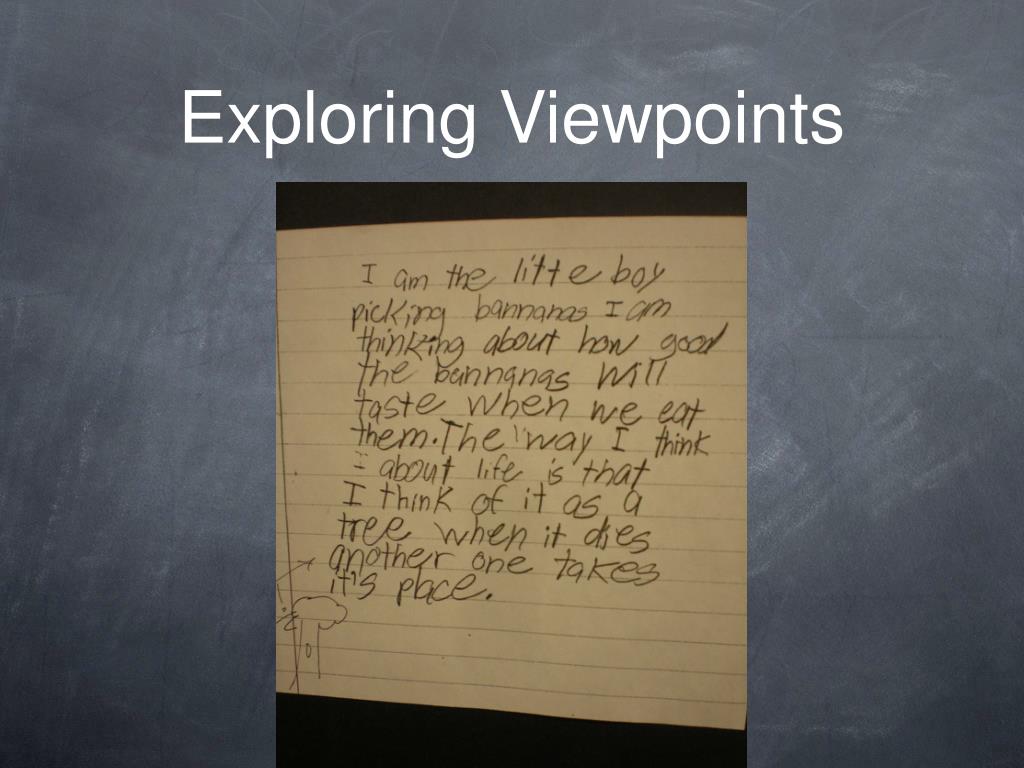 Exploring Viewpoints
I am the litte boy
picking bannanas I am
thinking about how good
the bannanas will
taste when we eat
them. The way I think
I about life is that
I think of it as a
tree when it dies
another one takes
it's place.